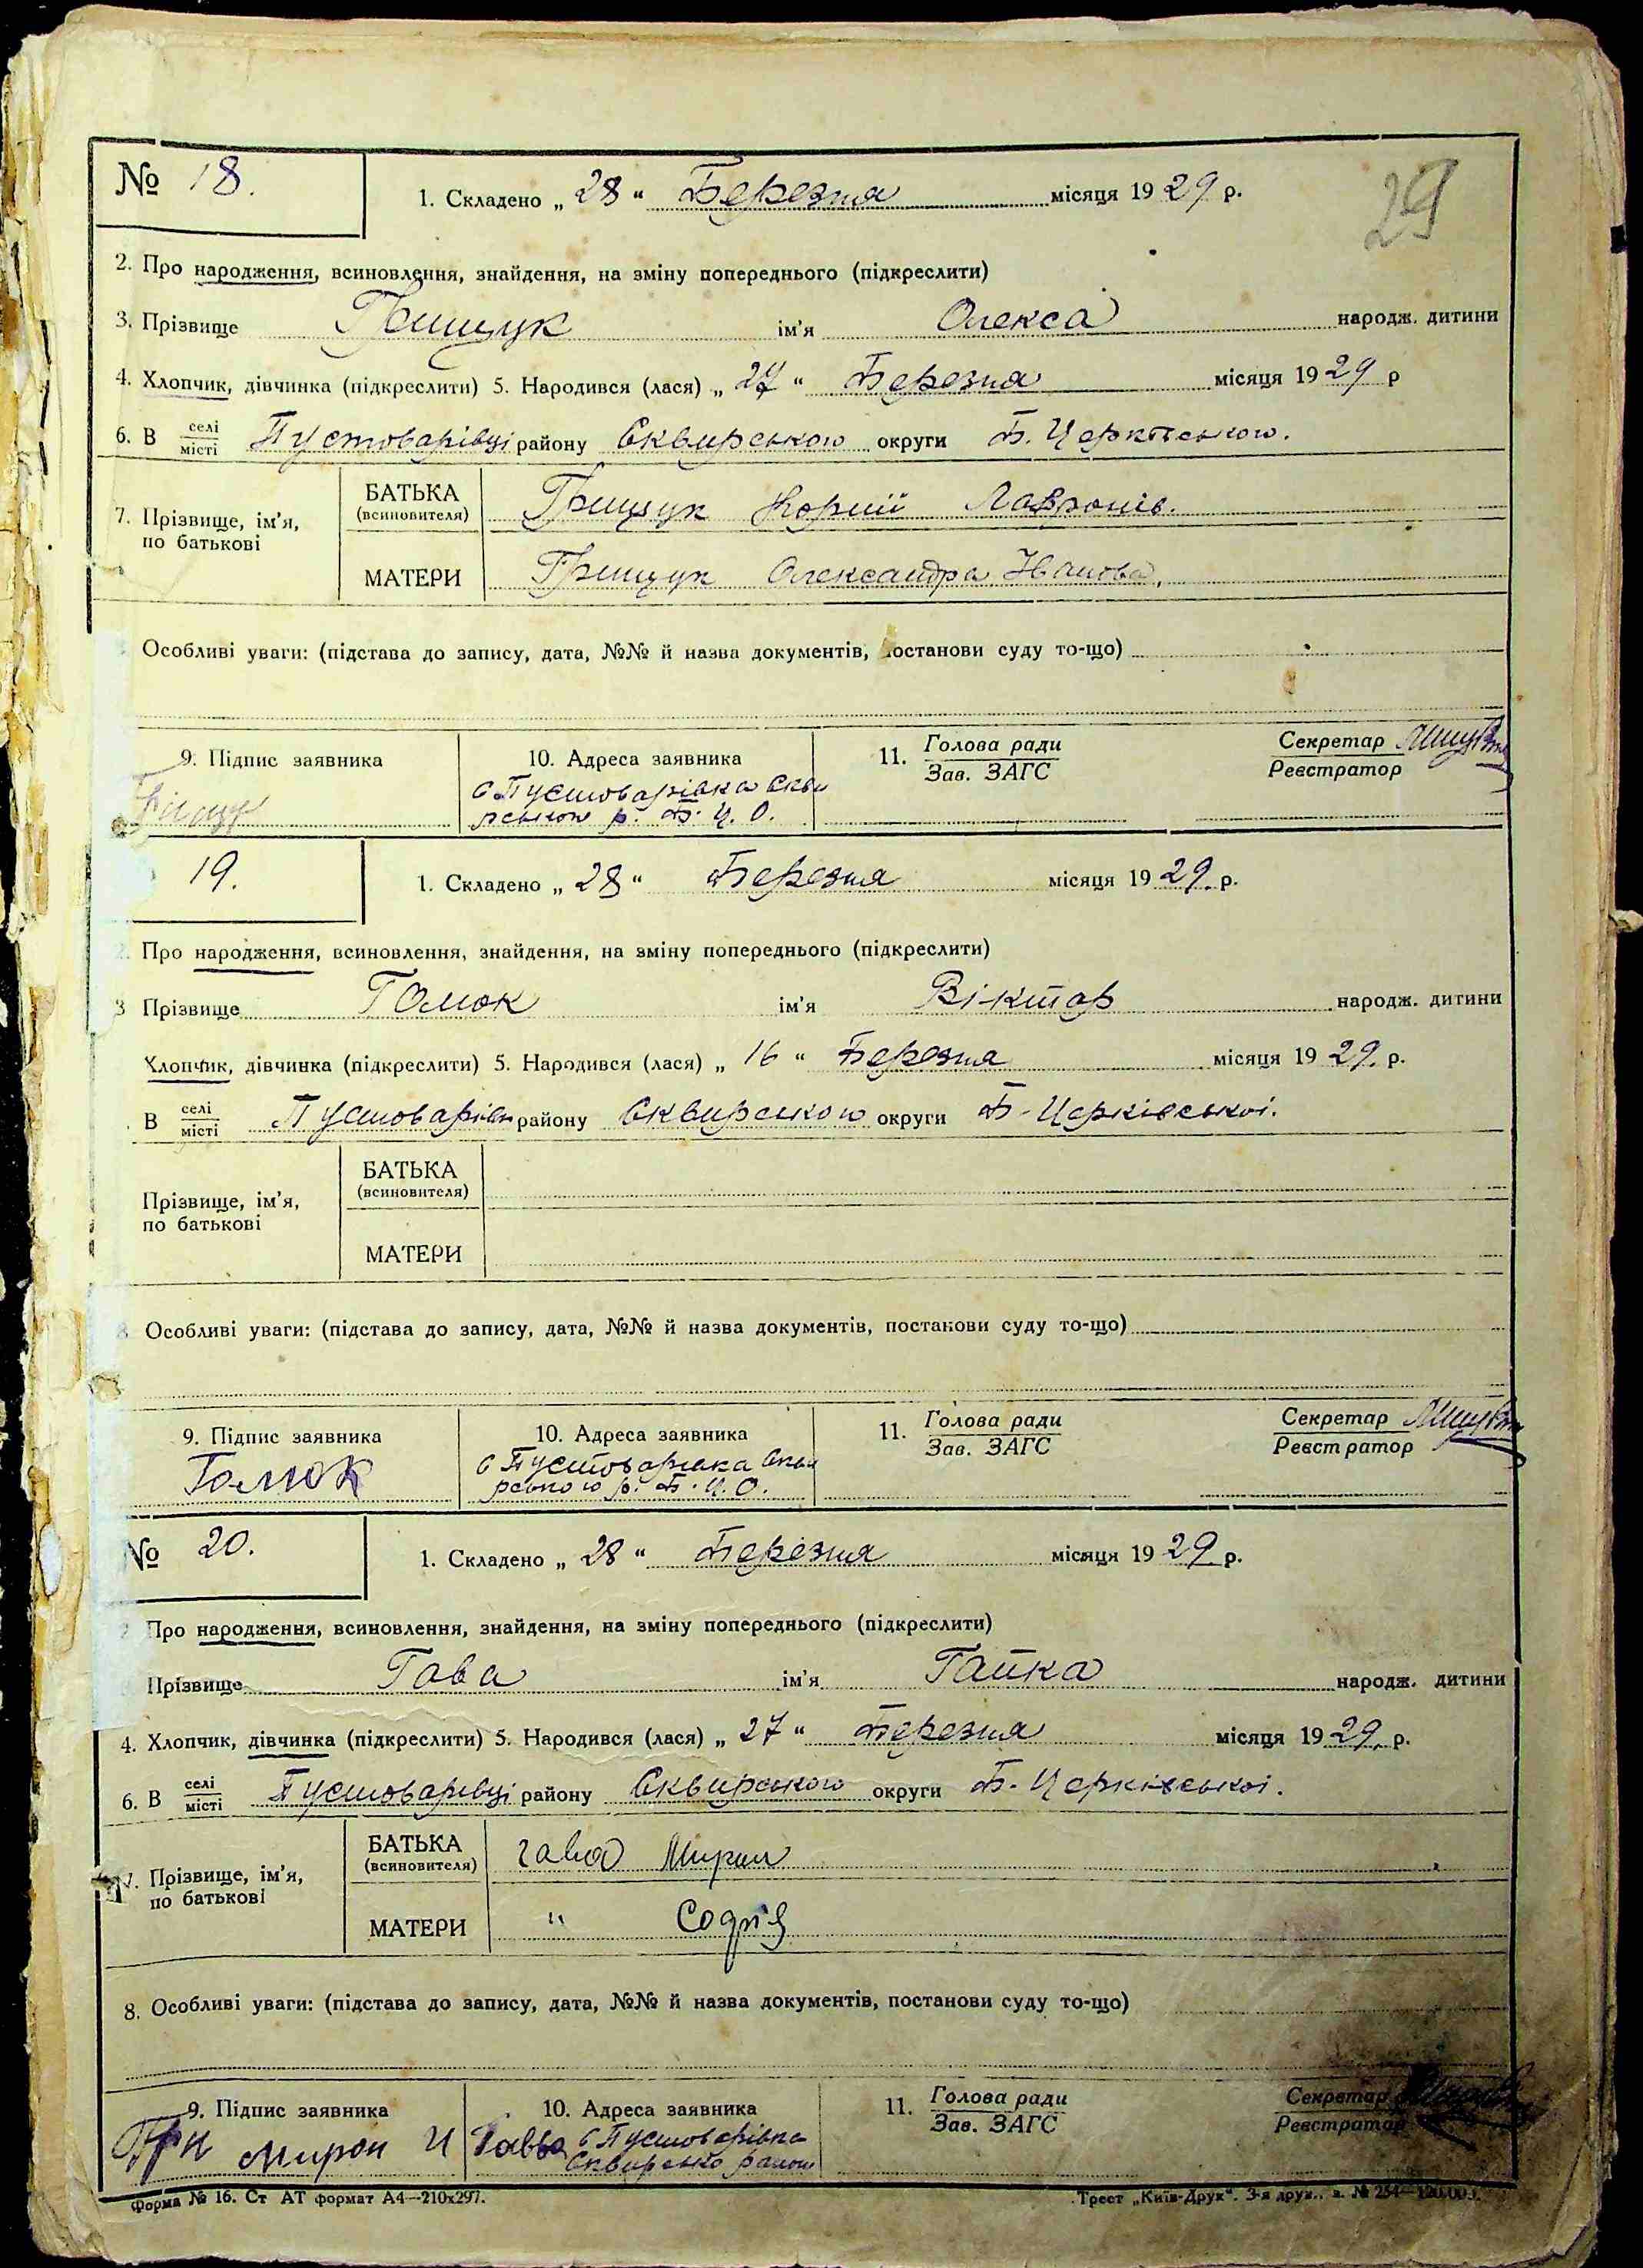 № 18.
1. Складено „ 28 “ Березня місяця 1929 р.
29
2. Про народження, всиновлення, знайдення, на зміну попереднього (підкреслити)
3. Прізвище Грищук ім'я Олекса народж. дитини
4. Хлопчик, дівчинка (підкреслити) 5. Народився (лася) „ 27 “ Березня місяця 1929 р
6. В селі/місті Пустоварівці району Сквирського округи Б. Церківського.
7. Прізвище, ім'я, по батькові
БАТЬКА (всиновителя) Грищук Корній Лавронів.
МАТЕРИ Грищук Олександра Іванова,
Особливі уваги: (підстава до запису, дата, №№ й назва документів, постанови суду то-що)
9. Підпис заявника
10. Адреса заявника
с Пустоварівка Скви
рського р. Б. Ц. О.
11. Голова ради
Зав. ЗАГС
Секретар
Реєстратор
19.
1. Складено „ 28 “ Березня місяця 1929. р.
Про народження, всиновлення, знайдення, на зміну попереднього (підкреслити)
3 Прізвище Гомок ім'я Віктор народж. дитини
Хлопчик, дівчинка (підкреслити) 5. Народився (лася) „ 16 “ Березня місяця 1929. р.
В селі/місті Пустоварівці району Сквирського округи Б-Церківської.
Прізвище, ім'я, по батькові
БАТЬКА (всиновителя)
МАТЕРИ
Особливі уваги: (підстава до запису, дата, №№ й назва документів, постанови суду то-що)
9. Підпис заявника
Гомок
10. Адреса заявника
с Пустоварівка Скви
рського р. Б. Ц. О.
11. Голова ради
Зав. ЗАГС
Секретар
Реєстратор
№ 20.
1. Складено „ 28 “ Березня місяця 1929 р.
Про народження, всиновлення, знайдення, на зміну попереднього (підкреслити)
Прізвище Гава ім'я Гапка народж. дитини
4. Хлопчик, дівчинка (підкреслити) 5. Народився (лася) „ 27 “ Березня місяця 1929. р.
6. В селі/місті Пустоварівці району Сквирського округи Б-Церківської.
7. Прізвище, ім'я, по батькові
БАТЬКА (всиновителя) гава Мирон
МАТЕРИ " Софія
8. Особливі уваги: (підстава до запису, дата, №№ й назва документів, постанови суду то-що)
9. Підпис заявника
мирон И Гавва
10. Адреса заявника
с Пустоварівка
Сквирсько району
11. Голова ради
Зав. ЗАГС
Секретар
Реєстратор
Форма № 16. Ст АТ формат А4—210х297.
Трест „Київ-Друк“. 3-я друк., з. № 254—120.000.